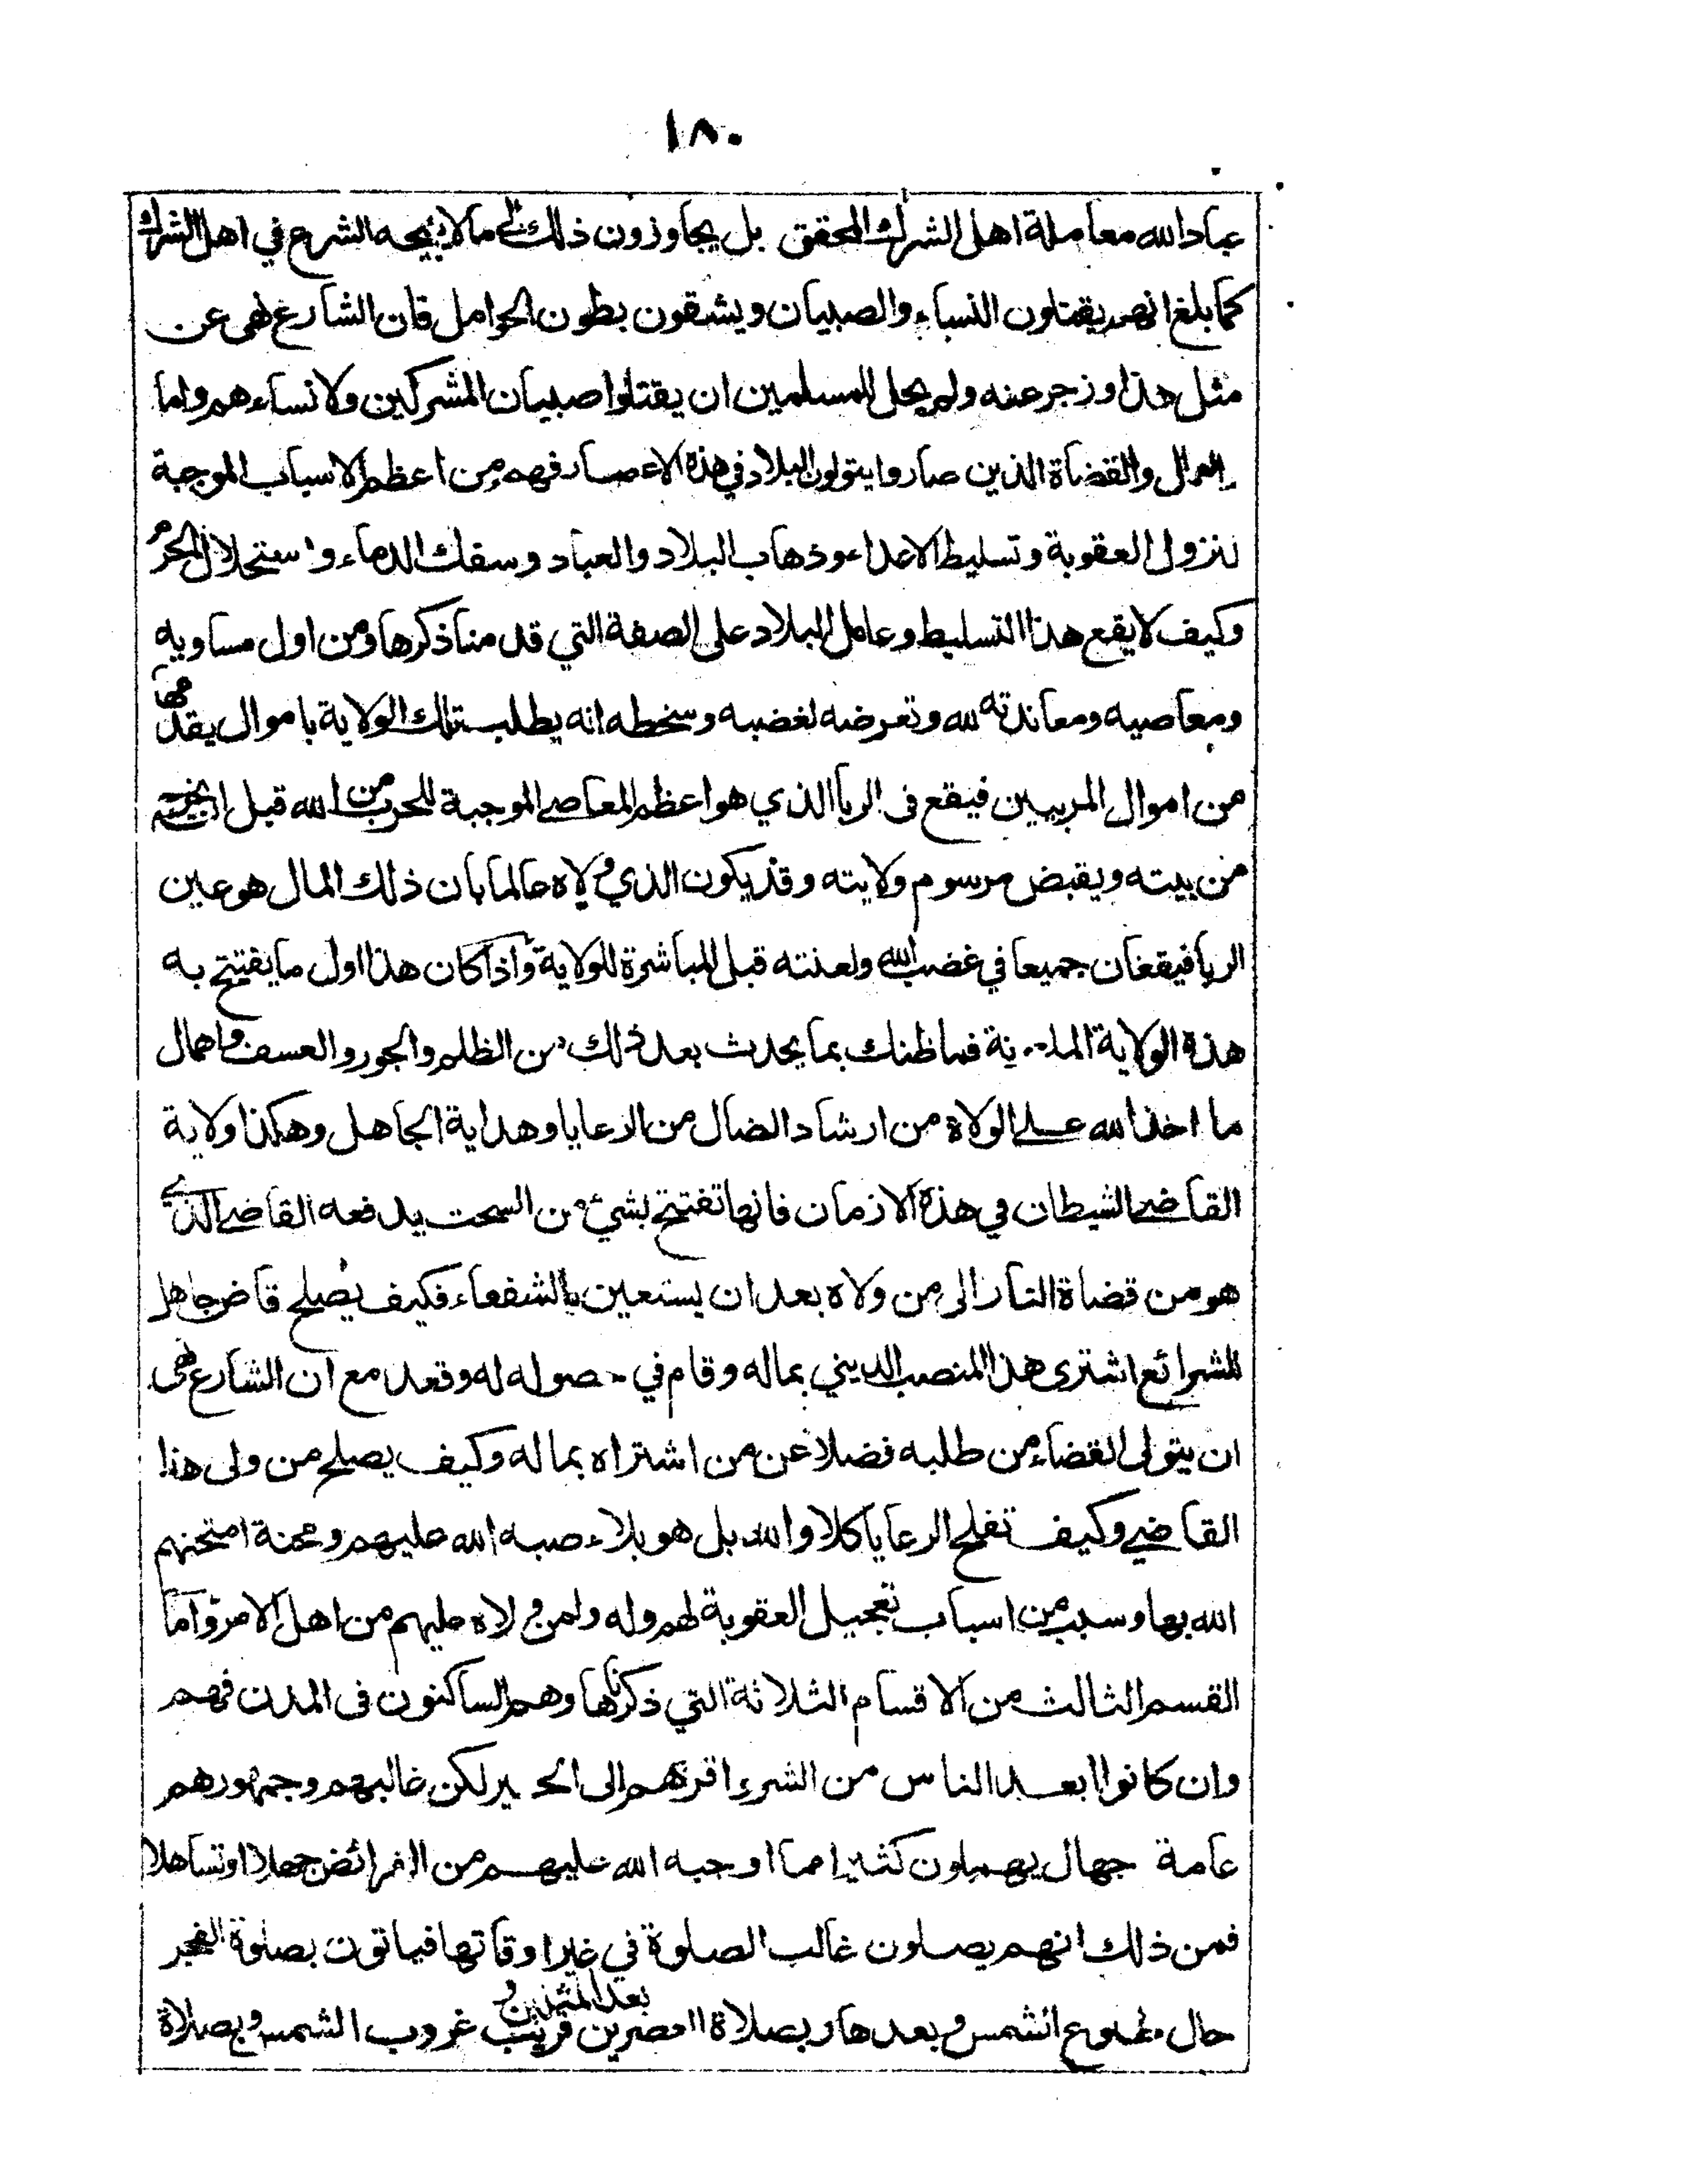 ١٨٠
عباد الله معاملة اهل الشرك المحقق بل يجاوزون ذلك الى ما لا يبيحه الشرع في اهل الشرك
كما بلغ انهم يقتلون النساء والصبيان ويشقون بطون الحوامل فان الشارع نهى عن
مثل هذا وزجر عنه ولم يحل للمسلمين ان يقتلوا صبيان المشركين ولا نساءهم واما
العمال والقضاة الذين صاروا يتولون البلاد في هذه الاعصار فهم من اعظم الاسباب الموجبة
لنزول العقوبة وتسليط الاعداء وذهاب البلاد والعباد وسفك الدماء واستحلال الحرم
وكيف لا يقع هذا التسليط وعامل البلاد على الصفة التي قدمنا ذكرها ومن اول مساويه
ومعاصيه ومعاندته لله وتعرضه لغضبه وسخطه انه يطلب تلك الولاية باموال يقدمها
من اموال المربيين فيقع في الربا الذي هو اعظم المعاصي الموجبة للحرب من الله قبل ان يخرج
من بيته ويقبض مرسوم ولايته وقد يكون الذي ولاه عالما بان ذلك المال هو عين
الربا فيقعان جميعا في غضب الله ولعنته قبل المباشرة للولاية واذا كان هذا اول ما يفتتح به
هذه الولاية فما ظنك بما يحدث بعد ذلك من الظلم والجور والعسف واهمال
ما اخذ الله على الولاة من ارشاد الضال من الرعايا وهداية الجاهل وهكذا ولاية
القاضي الشيطان في هذه الازمان فانها تفتتح بشيء من السحت يدفعه القاضي الذي
هو من قضاة النار الى من ولاه بعد ان يستعين بالشفعاء فكيف يصلح قاض جاهل
للشرائع اشترى هذا المنصب الديني بماله وقام في حصوله له وقعد مع ان الشارع نهى
ان يتولى القضاء من طلبه فضلا عن من اشتراه بماله وكيف يصلح من ولى هذا
القاضي وكيف تفلح الرعايا كلا والله بل هو بلاء صبه الله عليهم ومحنة امتحنهم
الله بها وسبب من اسباب تعجيل العقوبة لهم وله ولمن ولاه عليهم من اهل الامر واما
القسم الثالث من الاقسام الثلاثة التي ذكرناها وهم الساكنون في المدن فهم
وان كانوا ابعد الناس من الشر واقربهم الى الخير لكن غالبهم وجمهورهم
عامة جهال يهملون كثيرا مما اوجبه الله عليهم من الفرائض جهلا او تساهلا
فمن ذلك انهم يصلون غالب الصلوة في غير اوقاتها فياتون بصلوة الفجر
حال طلوع الشمس وبعدها وبصلاة العصرين قريب غروب الشمس وبصلاة